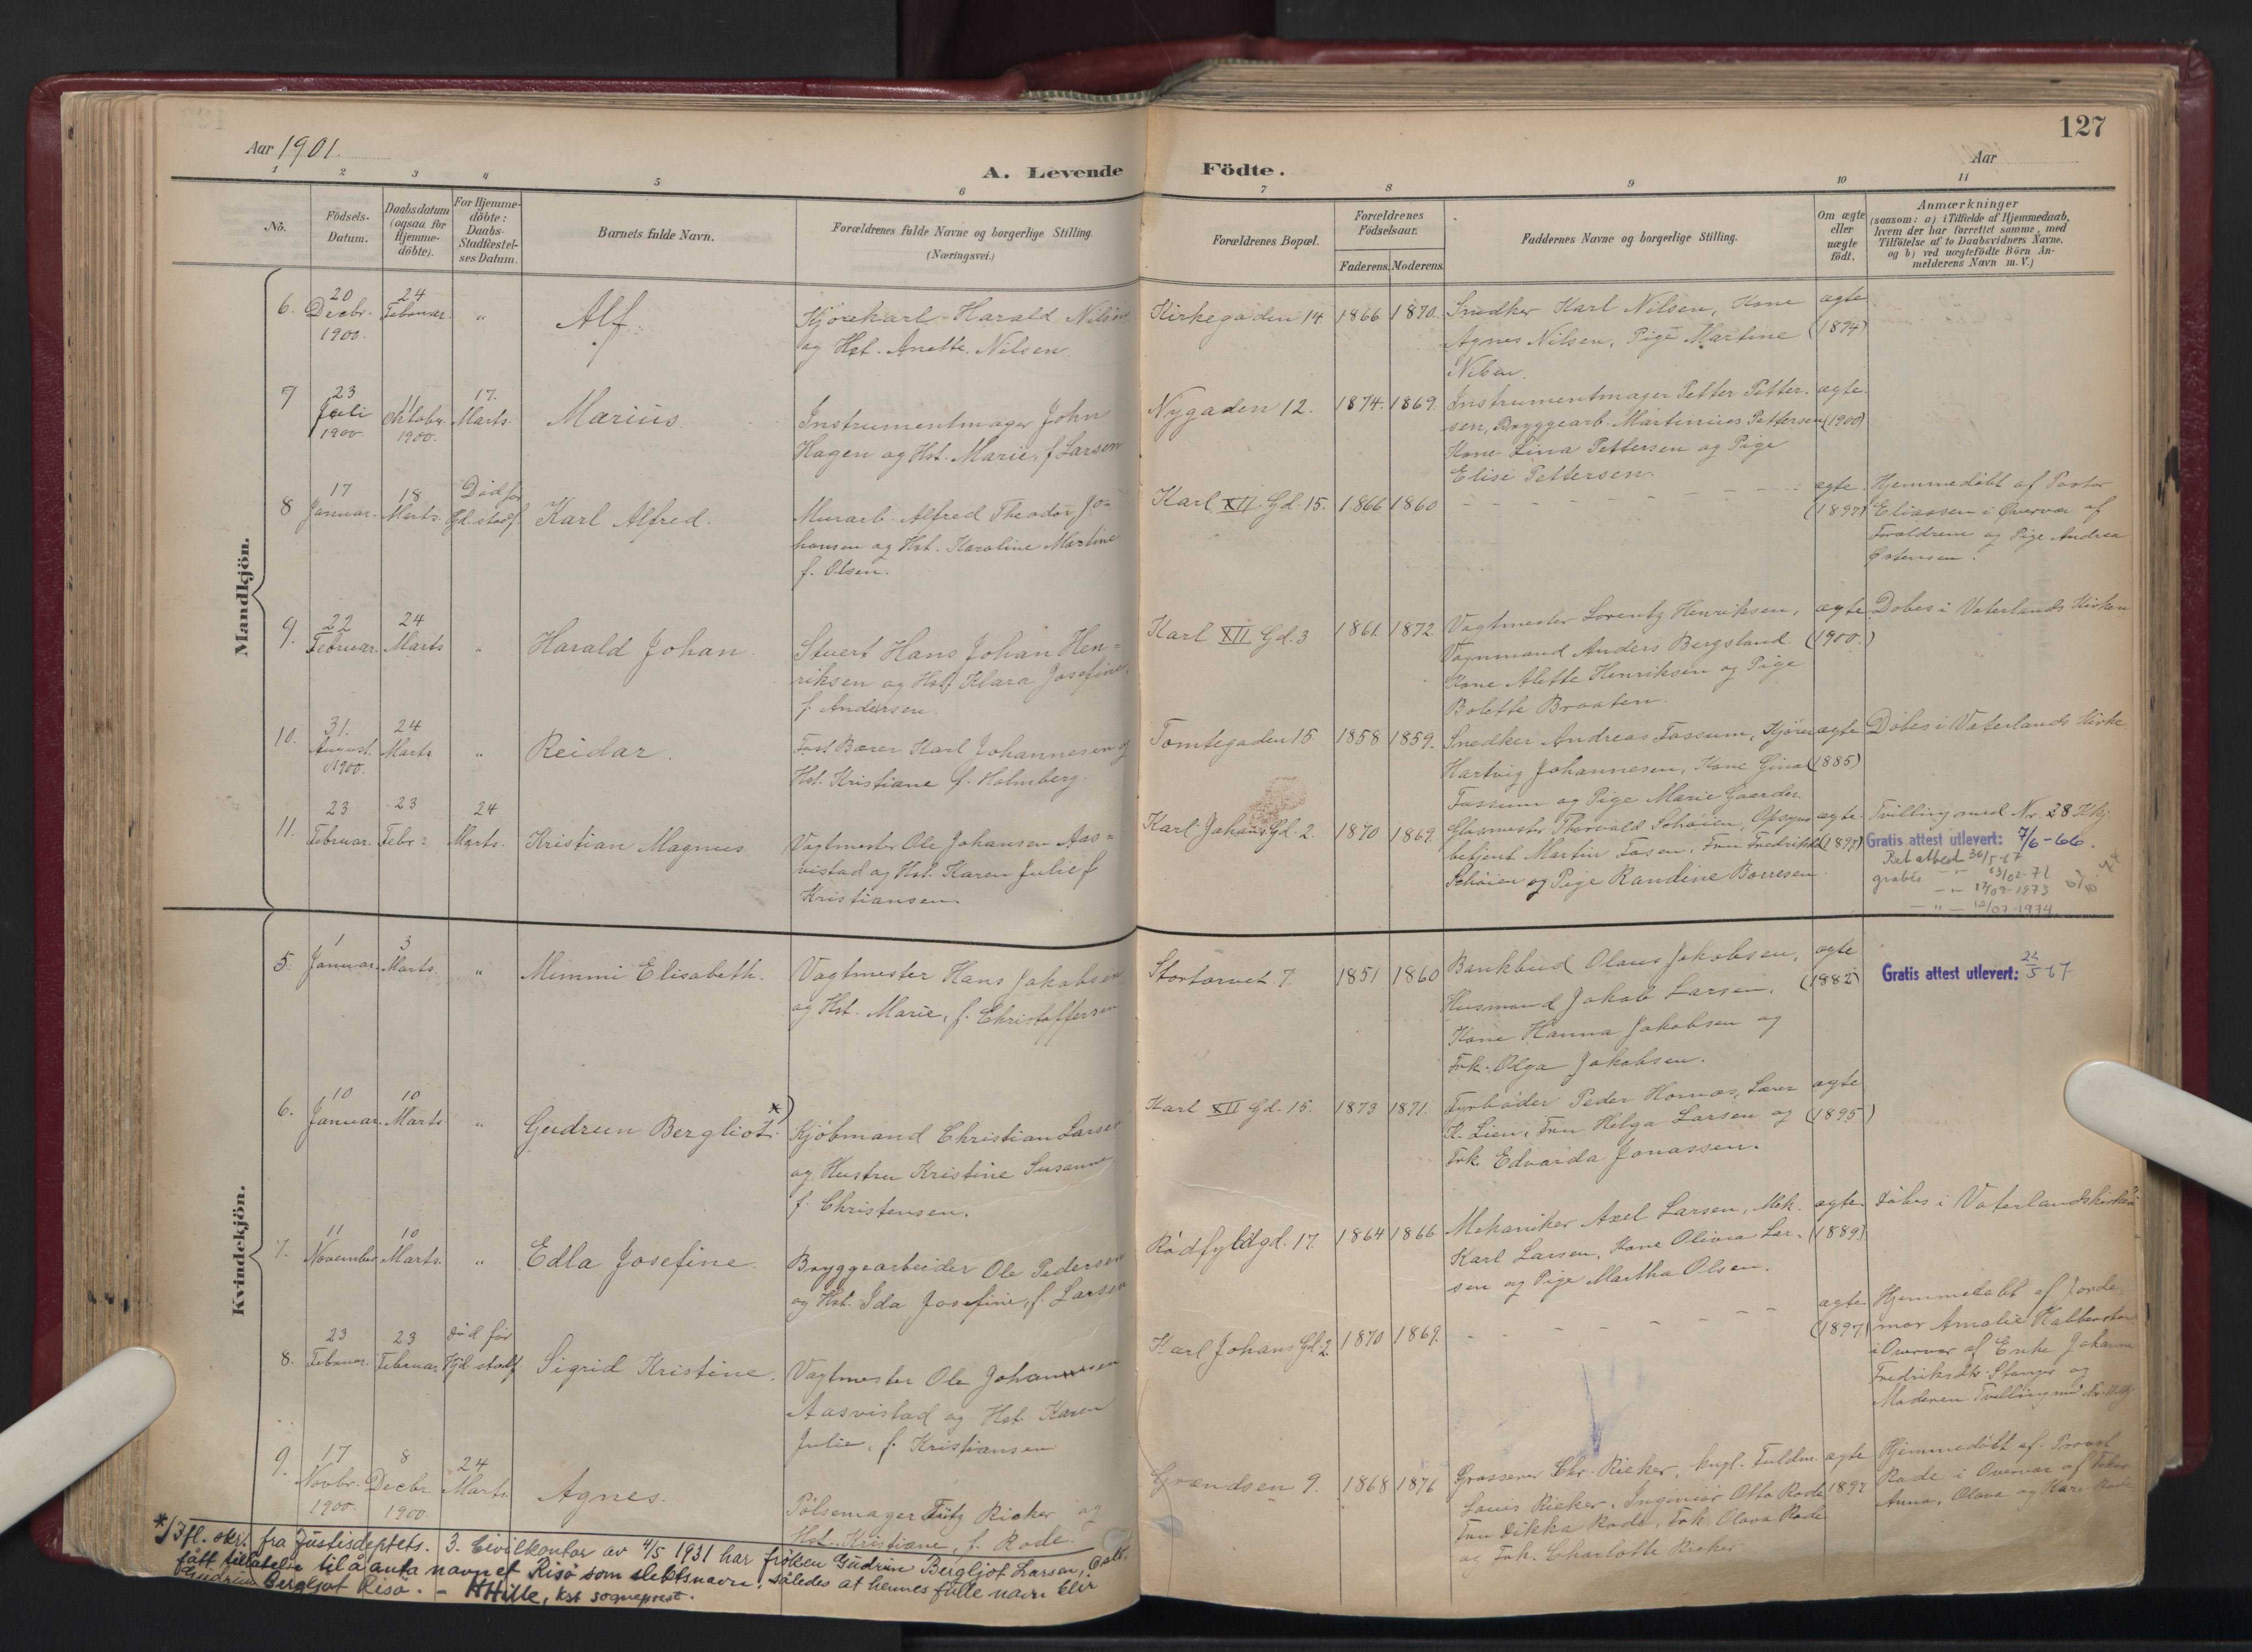 127
Aar 1901.
Aar
A. Levende Födte.
1 2 3 4 5 6 7 8 9 10 11
No.
Födsels-
Datum.
Daabsdatum
(ogsaa for
Hjemme-
döbte).
For Hjemme-
döbte:
Daabs-
Stadfæstel-
ses Datum.
Barnets fulde Navn.
Forældrenes fulde Navne og borgerlige Stilling.
(Næringsvei.)
Forældrenes Bopæl.
Forældrenes
Födselsaar.
Faderens. Moderens.
Faddernes Navne og borgerlige Stilling.
Om ægte
eller
uægte
födt.
Anmærkninger
(saasom: a) i Tilfælde af Hjemmedaab,
hvem der har forrettet samme, med
Tilföielse af to Daabsvidners Navne,
og b) ved uægtefödte Börn An-
melderens Navn m. V.)
Mandkjön.
6.
20
Decbr.
1900.
24
Februar
"
Alf.
Kjørekarl Harald Nilsen
og Hst. Anette Nilsen
Kirkegaden 14
1866 1870.
Snedker Karl Nilsen, Kone
Agnes Nilsen, Pige Martine
Nilsen.
ægte
(1894)
7
23
Juli
1900
11
Oktober
1900.
17.
Marts.
Marius.
Instrumentmager John
Hagen og Hst. Marie, f. Larsen
Nygaden 12.
1874. 1869.
Instrumentmager Petter Petter-
sen, Bryggearb. Martinius Pettersen
Kone Lina Pettersen og Pige
Elise Pettersen.
ægte.
(1900)
8
17
Januar.
18
Marts.
Død før
Hjd. stadf.
Karl Alfred.
Murarb. Alfred Theodor Jo-
hansen og Hst. Karoline Martine
f. Olsen.
Karl XII Gd. 15.
1866 1860
ægte
(1897)
Hjemmedøbt af Pastor
Eliassen i Overvær af
Forældrene og Pige Andrea
Østensen.
9.
22
Februar.
24
Marts
"
Harald Johan.
Stuert Hans Johan Hen-
riksen og Hst. Klara Josefine,
f. Andersen.
Karl XII Gd. 3
1861. 1872.
Vagtmester Lorentz Henriksen,
Vognmand Anders Bergsland.
Kone Alette Henriksen og Pige
Bolette Braaten.
ægte
(1900.)
Døbes i Vaterlands Kirken
10.
31.
August.
1900.
24
Marts
"
Reidar.
Fast Bærer Karl Johannesen og
Hst. Kristiane f. Holmberg.
Tomtegaden 15
1858 1859.
Snedker Andreas Fossum, Kjører
Hartvig Johannesen, Kone Gina
Fossum og Pige Marie Gaarder.
ægte
(1885)
Døbes i Vaterlands Kirke
11.
23
Februar.
23
Febr.
24
Marts.
Kristian Magnus
Vagtmester Ole Johansen Aas-
vistad og Hst. Karen Julie f.
Kristiansen.
Karl Johans Gd. 2.
1870 1869.
Glasmester Thorvald Schøien, Opsyns-
betjent Martin Fosen, Fru Fredrikke
Schøien og Pige Randine Børresen
ægte.
(1897)
Tvilling med Nr. 28 Kkj.
Gratis attest utlevert: 7/6-66.
30/5-67
13/02-71
17/09-1973
12/07-1974
Kvindekjön.
5.
1
Januar.
3
Marts.
"
Mimmi Elisabeth.
Vagtmester Hans Jakobsen
og Hst. Marie, f. Christoffersen
Stortorvet 7.
1851 1860
Bankbud Olaus Jakobsen,
Husmand Jakob Larsen,
Kone Hanna Jakobsen og
Frk. Olga Jakobsen.
ægte
(1882)
Gratis attest utlevert: 22/5-67
6.
10
Januar.
10
Marts
"
Gudrun Bergliot.*)
Kjøbmand Christian Larsen
og Hustru Kristine Susanne
f. Christensen.
Karl XII Gd. 15.
1873 1871.
Fyrbøder Peder Homnæs, Lærer
K. Lien, Fru Helga Larsen og
Frk. Edvarda Jonassen.
ægte
(1895)
7.
11
November
10
Marts.
"
Edla Josefine.
Bryggearbeider Ole Pedersen
og Hst. Ida Josefine, f. Larsen
Rødfyldgd. 17.
1864 1866
Mekaniker Axel Larsen, Mek.
Karl Larsen, Kone Olivia Lar-
sen og Pige Martha Olsen.
ægte.
(1889)
Døbes i Vaterlandskirken
8.
23
Februar.
23
Februar
Død før
Hjd. stadf.
Sigrid Kristine.
Vagtmester Ole Johannessen
Aasvistad og Hst. Karen
Julie, f. Kristiansen
Karl Johans Gd. 2
1870 1869.
ægte
(1897)
Hjemmedøbt af Jorde-
mor Amalie Habberstad
i Overvær af Enke Johanne
Fredriksdtr Stanger og
Moderen Tvilling med
9.
17
Novbr.
1900
8
Decbr
1900.
24
Marts.
Agnes.
Pølsemager Fritz Rieker og
Hst. Kristiane, f. Rode.
Grændsen 9.
1868 1876
Grosserer Chr. Rieker, kngl. Fuldm.
Louis Rieker, Ingeniør Otto Rode
Fru Dikka Rode, Frk. Olava Rode
og Frk. Charlotte Rieker.
ægte
1897
Hjemmedøbt af Provst
Rode i Overvær af Frkner
Anna, Olava og Kari Rode
*) Ifl. skr. fra Justisdeptets. 3. Civilkontor av 4/5 1931 har frøken Gudrun Bergljot Larsen,
fått tillatelse til å anta navnet Risö som slektsnavn, således at hennes fulle navn blir
Gudrun Bergljot Risö. - HHille, kst sogneprest.